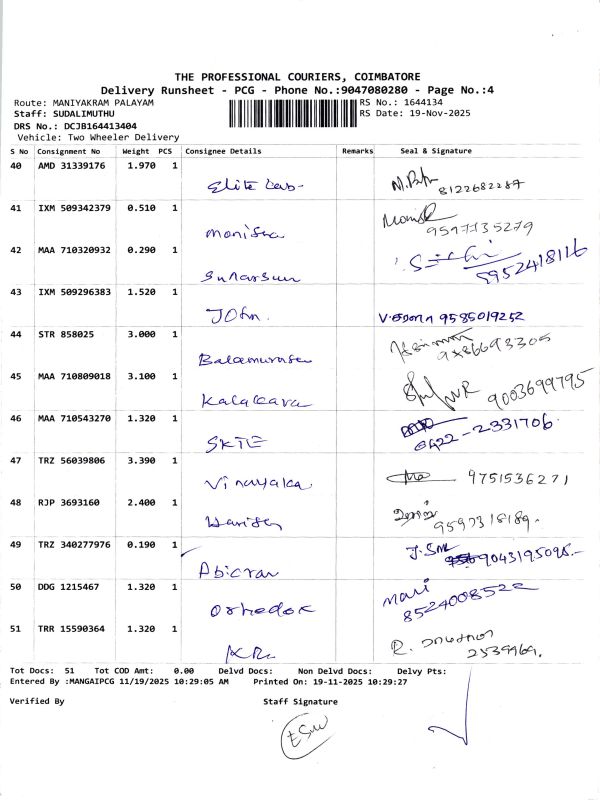 THE PROFESSIONAL COURIERS, COIMBATORE
Delivery Runsheet - PCG - Phone No.:9047080280 - Page No.:4
Route: MANIYAKRAM PALAYAM RS No.: 1644134
Staff: SUDALIMUTHU RS Date: 19-Nov-2025
DRS No.: DCJB164413404
Vehicle: Two Wheeler Delivery
S No Consignment No Weight PCS Consignee Details Remarks Seal & Signature
40 AMD 31339176 1.970 1
Elite Lab- 8122682287
41 IXM 509342379 0.510 1
Monisha 9597735279
42 MAA 710320932 0.290 1
8952418116
43 IXM 509296383 1.520 1
John. 9585019252
44 STR 858025 3.000 1
45 MAA 710809018 3.100 1
9003699795
46 MAA 710543270 1.320 1
SKTE 0422-2331706
47 TRZ 56039806 3.390 1
Vinayaka 9751536271
48 RJP 3693160 2.400 1
9597318189.
49 TRZ 340277976 0.190 1
9043195098.-
50 DDG 1215467 1.320 1
Mari
51 TRR 15590364 1.320 1
Tot Docs: 51 Tot COD Amt: 0.00 Delvd Docs: Non Delvd Docs: Delvy Pts:
Entered By :MANGAIPCG 11/19/2025 10:29:05 AM Printed On: 19-11-2025 10:29:27
Verified By Staff Signature